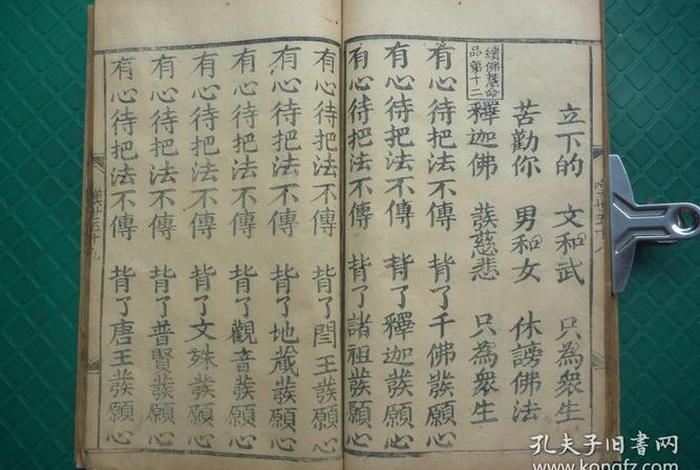 立下的　文和武　只為衆生
苦勸你　男和女　休謗佛法
續佛慧命
品第十二
釋迦佛　發慈悲　只為衆生
有心待把法不傳　背了千佛發願心
有心待把法不傳　背了釋迦發願心
有心待把法不傳　背了諸祖發願心
有心待把法不傳　背了閻王發願心
有心待把法不傳　背了地藏發願心
有心待把法不傳　背了觀音發願心
有心待把法不傳　背了文殊發願心
有心待把法不傳　背了普賢發願心
有心待把法不傳　背了唐王發願心
孔夫子旧书网
www.kongfz.com